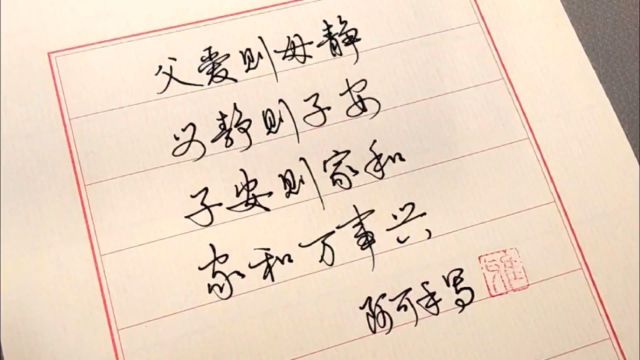 父爱则母静
母静则子安
子安则家和
家和万事兴
阿可手写